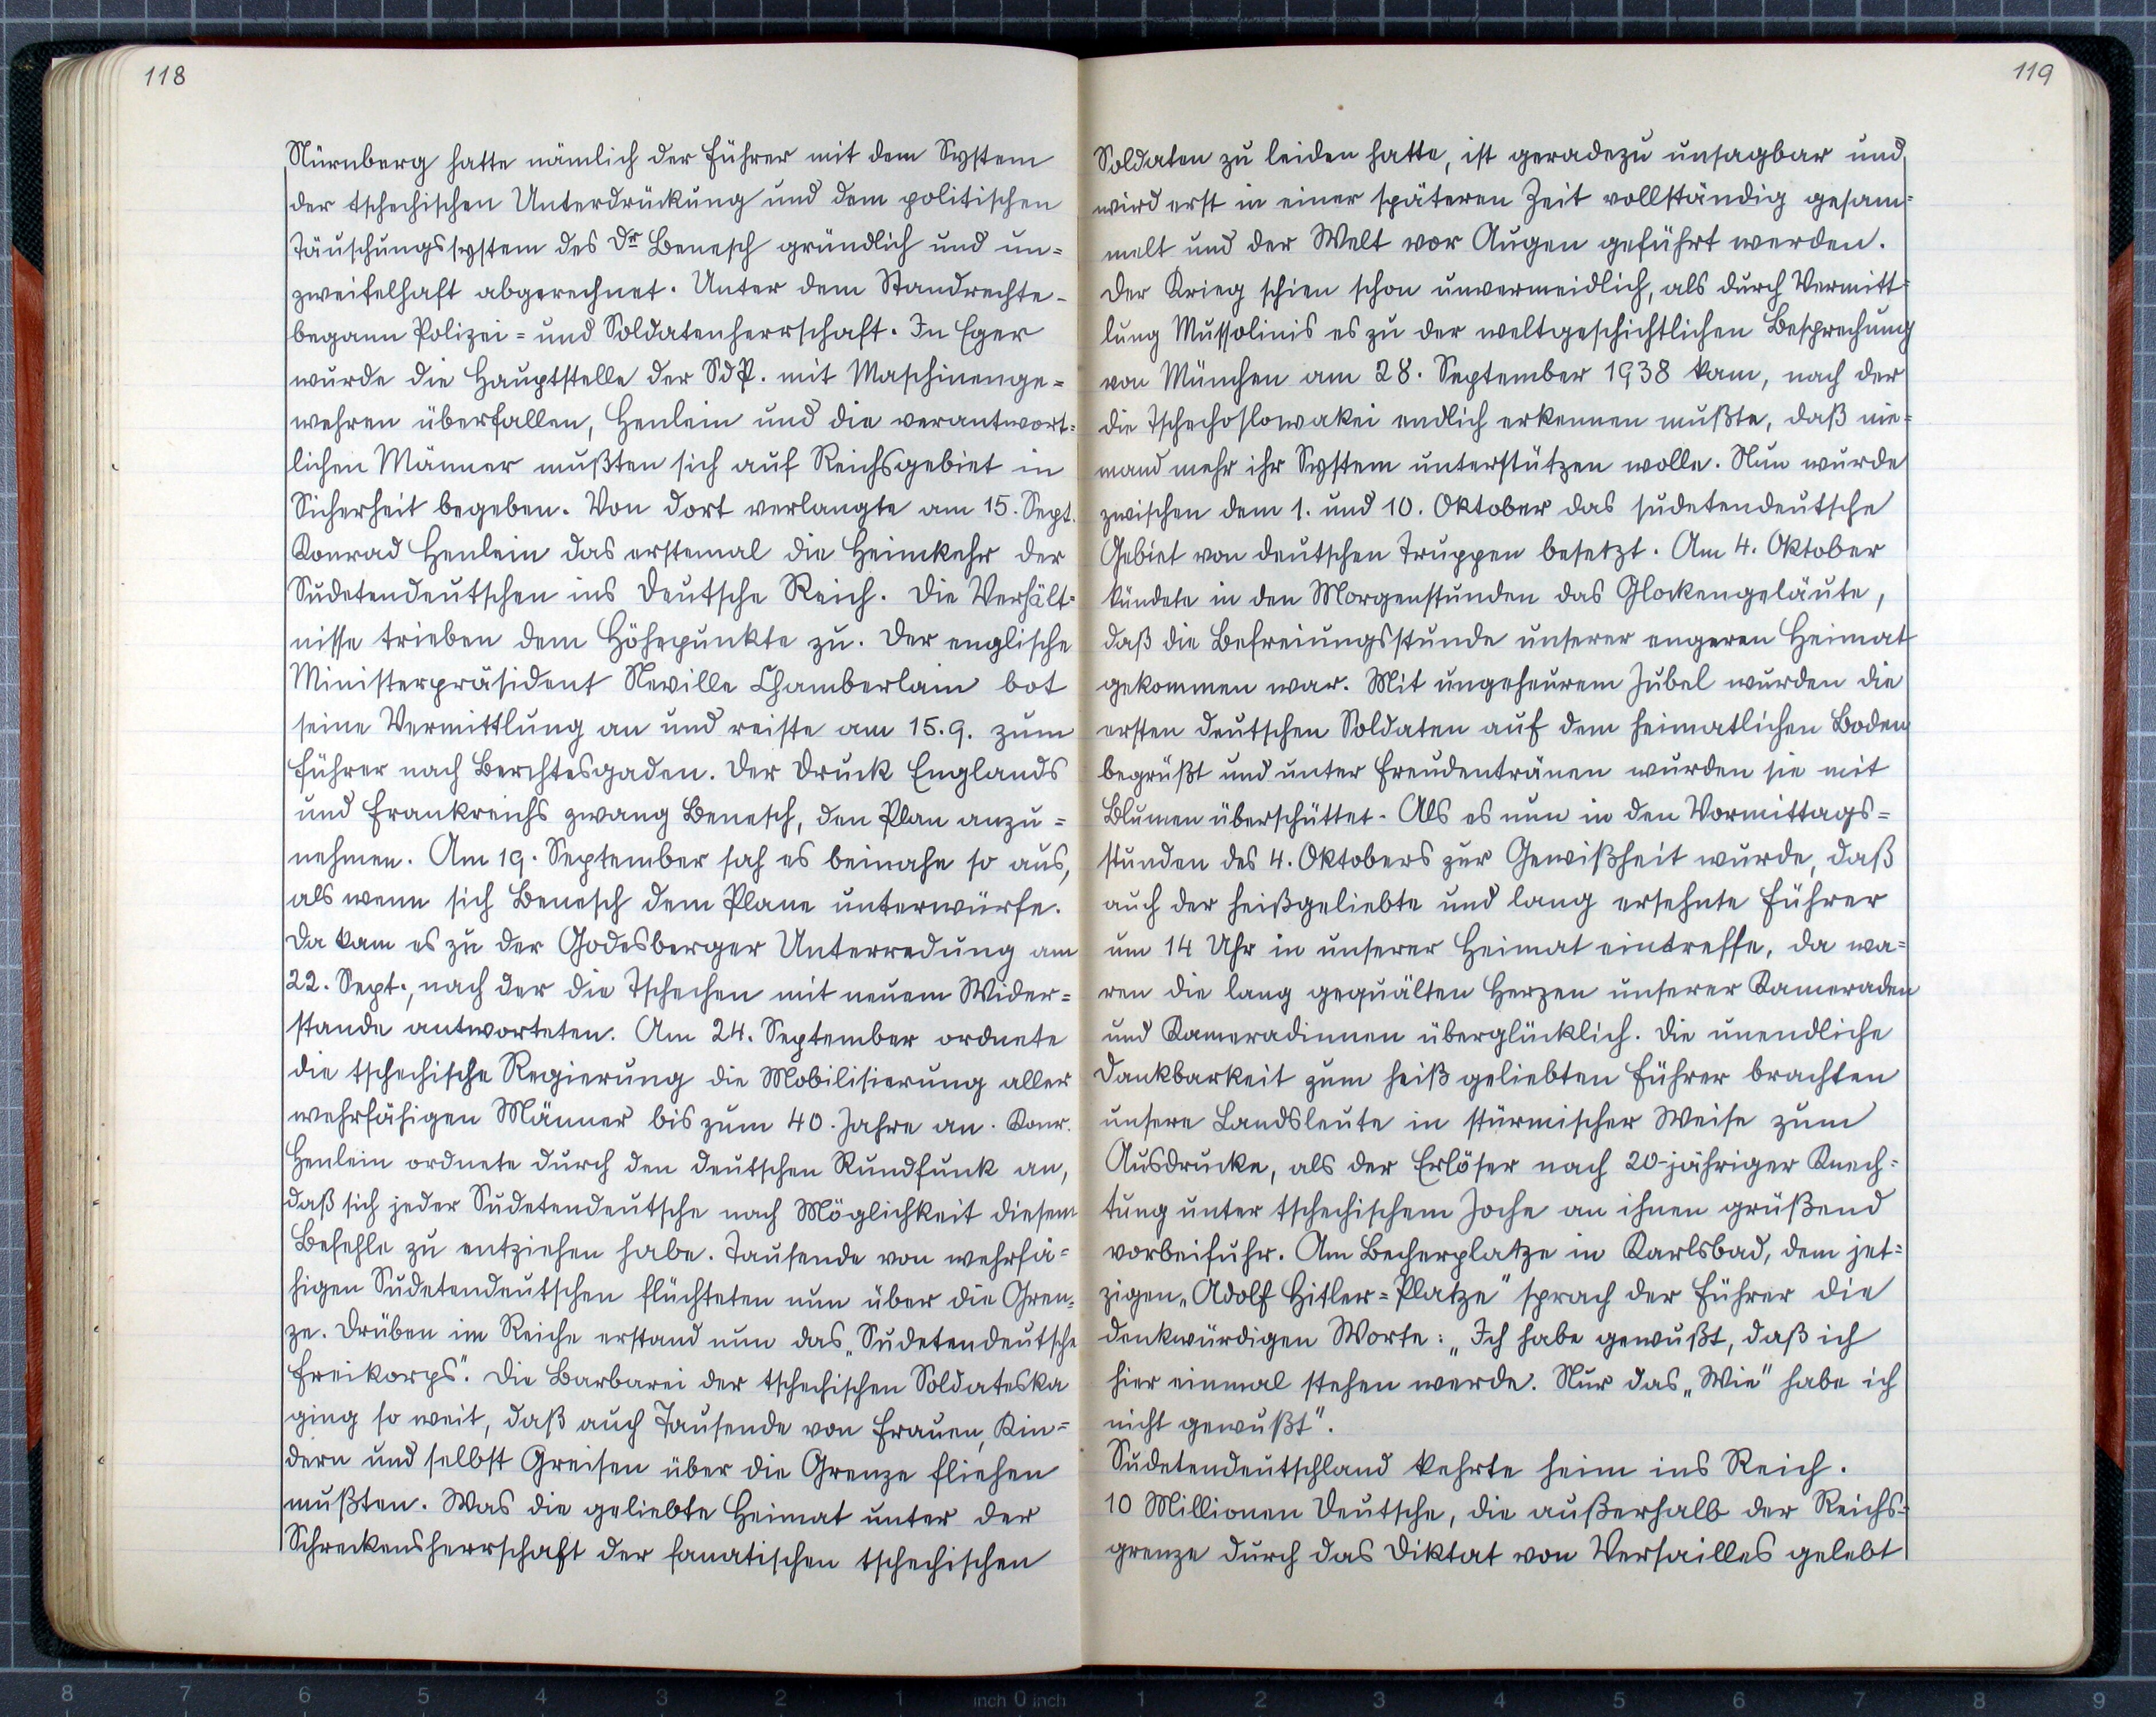 118
Nürnberg hatte nämlich der Führer mit dem System
der tschechischen Unterdrückung und dem politischen
Täuschungssystem des Dr Benesch gründlich und un=
zweifelhaft abgerechnet. Unter dem Standrechte-
begann Polizei= und Soldatenherrschaft. In Eger
wurde die Hauptstelle der SdP. mit Maschinenge=
wehren überfallen, Henlein und die verantwort=
lichen Männer mußten sich auf Reichsgebiet in
Sicherheit begeben. Von dort verlangte am 15. Sept.
Konrad Henlein das erstemal die Heimkehr der
Sudetendeutschen ins Deutsche Reich. Die Verhält=
nisse trieben dem Höhepunkte zu. Der englische
Ministerpräsident Neville Chamberlain bot
seine Vermittlung an und reiste am 15.9. zum
Führer nach Berchtesgaden. Der Druck Englands
und Frankreichs zwang Benesch, den Plan anzu=
nehmen. Am 19. September sah es beinahe so aus,
als wenn sich Benesch dem Plane unterwürfe.
Da kam es zu der Godesberger Unterredung am
22. Sept., nach der die Tschechen mit neuem Wider=
stande antworteten. Am 24. September ordnete
die tschechische Regierung die Mobilisierung aller
wehrfähigen Männer bis zum 40. Jahre an. Konr.
Henlein ordnete durch den deutschen Rundfunk an,
daß sich jeder Sudetendeutsche nach Möglichkeit diesem
Befehle zu entziehen habe. Tausende von wehrfä=
higen Sudetendeutschen flüchteten nun über die Gren=
ze. Drüben im Reiche erstand nun das „Sudetendeutsche
Freikorps". Die Barbarei der tschechischen Soldateska
ging so weit, daß auch Tausende von Frauen, Kin=
dern und selbst Greisen über die Grenze fliehen
mußten. Was die geliebte Heimat unter der
Schreckensherrschaft der fanatischen tschechischen
119
Soldaten zu leiden hatte, ist geradezu unsagbar und
wird erst in einer späteren Zeit vollständig gesam=
melt und der Welt vor Augen geführt werden.
Der Krieg schien schon unvermeidlich, als durch Vermitt=
lung Mussolinis es zu der weltgeschichtlichen Besprechung
von München am 28. September 1938 kam, nach der
die Tschechoslowakei endlich erkennen mußte, daß nie=
mand mehr ihr System unterstützen wolle. Nun wurde
zwischen dem 1. und 10. Oktober das sudetendeutsche
Gebiet von deutschen Truppen besetzt. Am 4. Oktober
kündete in den Morgenstunden das Glockengeläute,
daß die Befreiungsstunde unserer engeren Heimat
gekommen war. Mit ungeheurem Jubel wurden die
ersten deutschen Soldaten auf dem heimatlichen Boden
begrüßt und unter Freudentränen wurden sie mit
Blumen überschüttet. Als es nun in den Vormittags=
stunden des 4. Oktobers zur Gewißheit wurde, daß
auch der heißgeliebte und lang ersehnte Führer
um 14 Uhr in unserer Heimat eintreffe, da wa=
ren die lang gequälten Herzen unserer Kameraden
und Kameradinnen überglücklich. Die unendliche
Dankbarkeit zum heiß geliebten Führer brachten
unsere Landsleute in stürmischer Weise zum
Ausdrucke, als der Erlöser nach 20-jähriger Knech=
tung unter tschechischem Joche an ihnen grüßend
vorbeifuhr. Am Becherplatze in Karlsbad, dem jet=
zigen „Adolf Hitler=Platze" sprach der Führer die
denkwürdigen Worte: „Ich habe gewußt, daß ich
hier einmal stehen werde. Nur das „Wie" habe ich
nicht gewußt".
Sudetendeutschland kehrte heim ins Reich.
10 Millionen Deutsche, die außerhalb der Reichs=
grenze durch das Diktat von Versailles gelebt
8 7 6 5 4 3 2 1 inch 0 inch 1 2 3 4 5 6 7 8 9